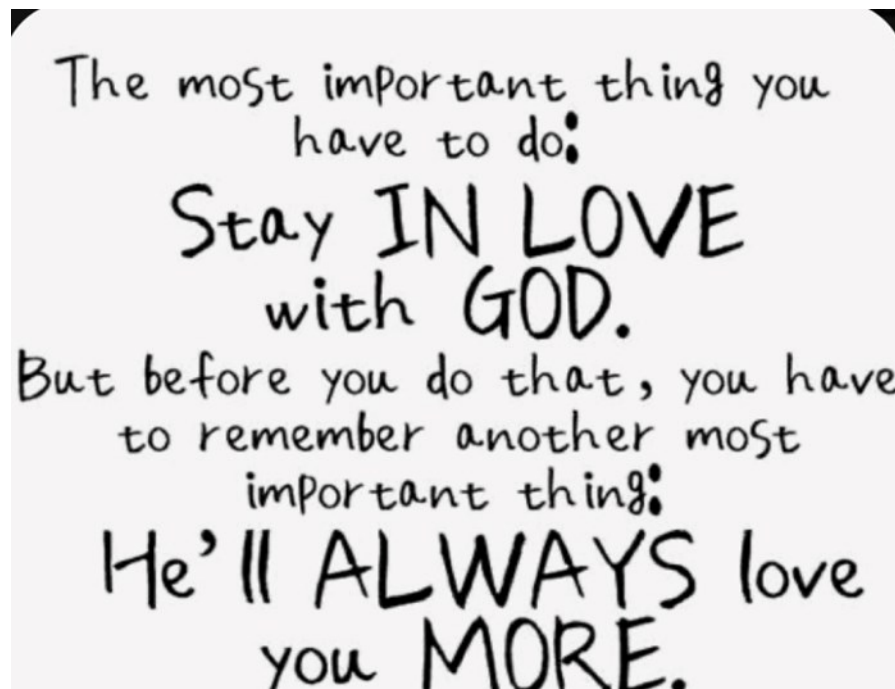 The most important thing you
have to do:
Stay IN LOVE
with GOD.
But before you do that, you have
to remember another most
important thing:
He'll ALWAYS love
you MORE.